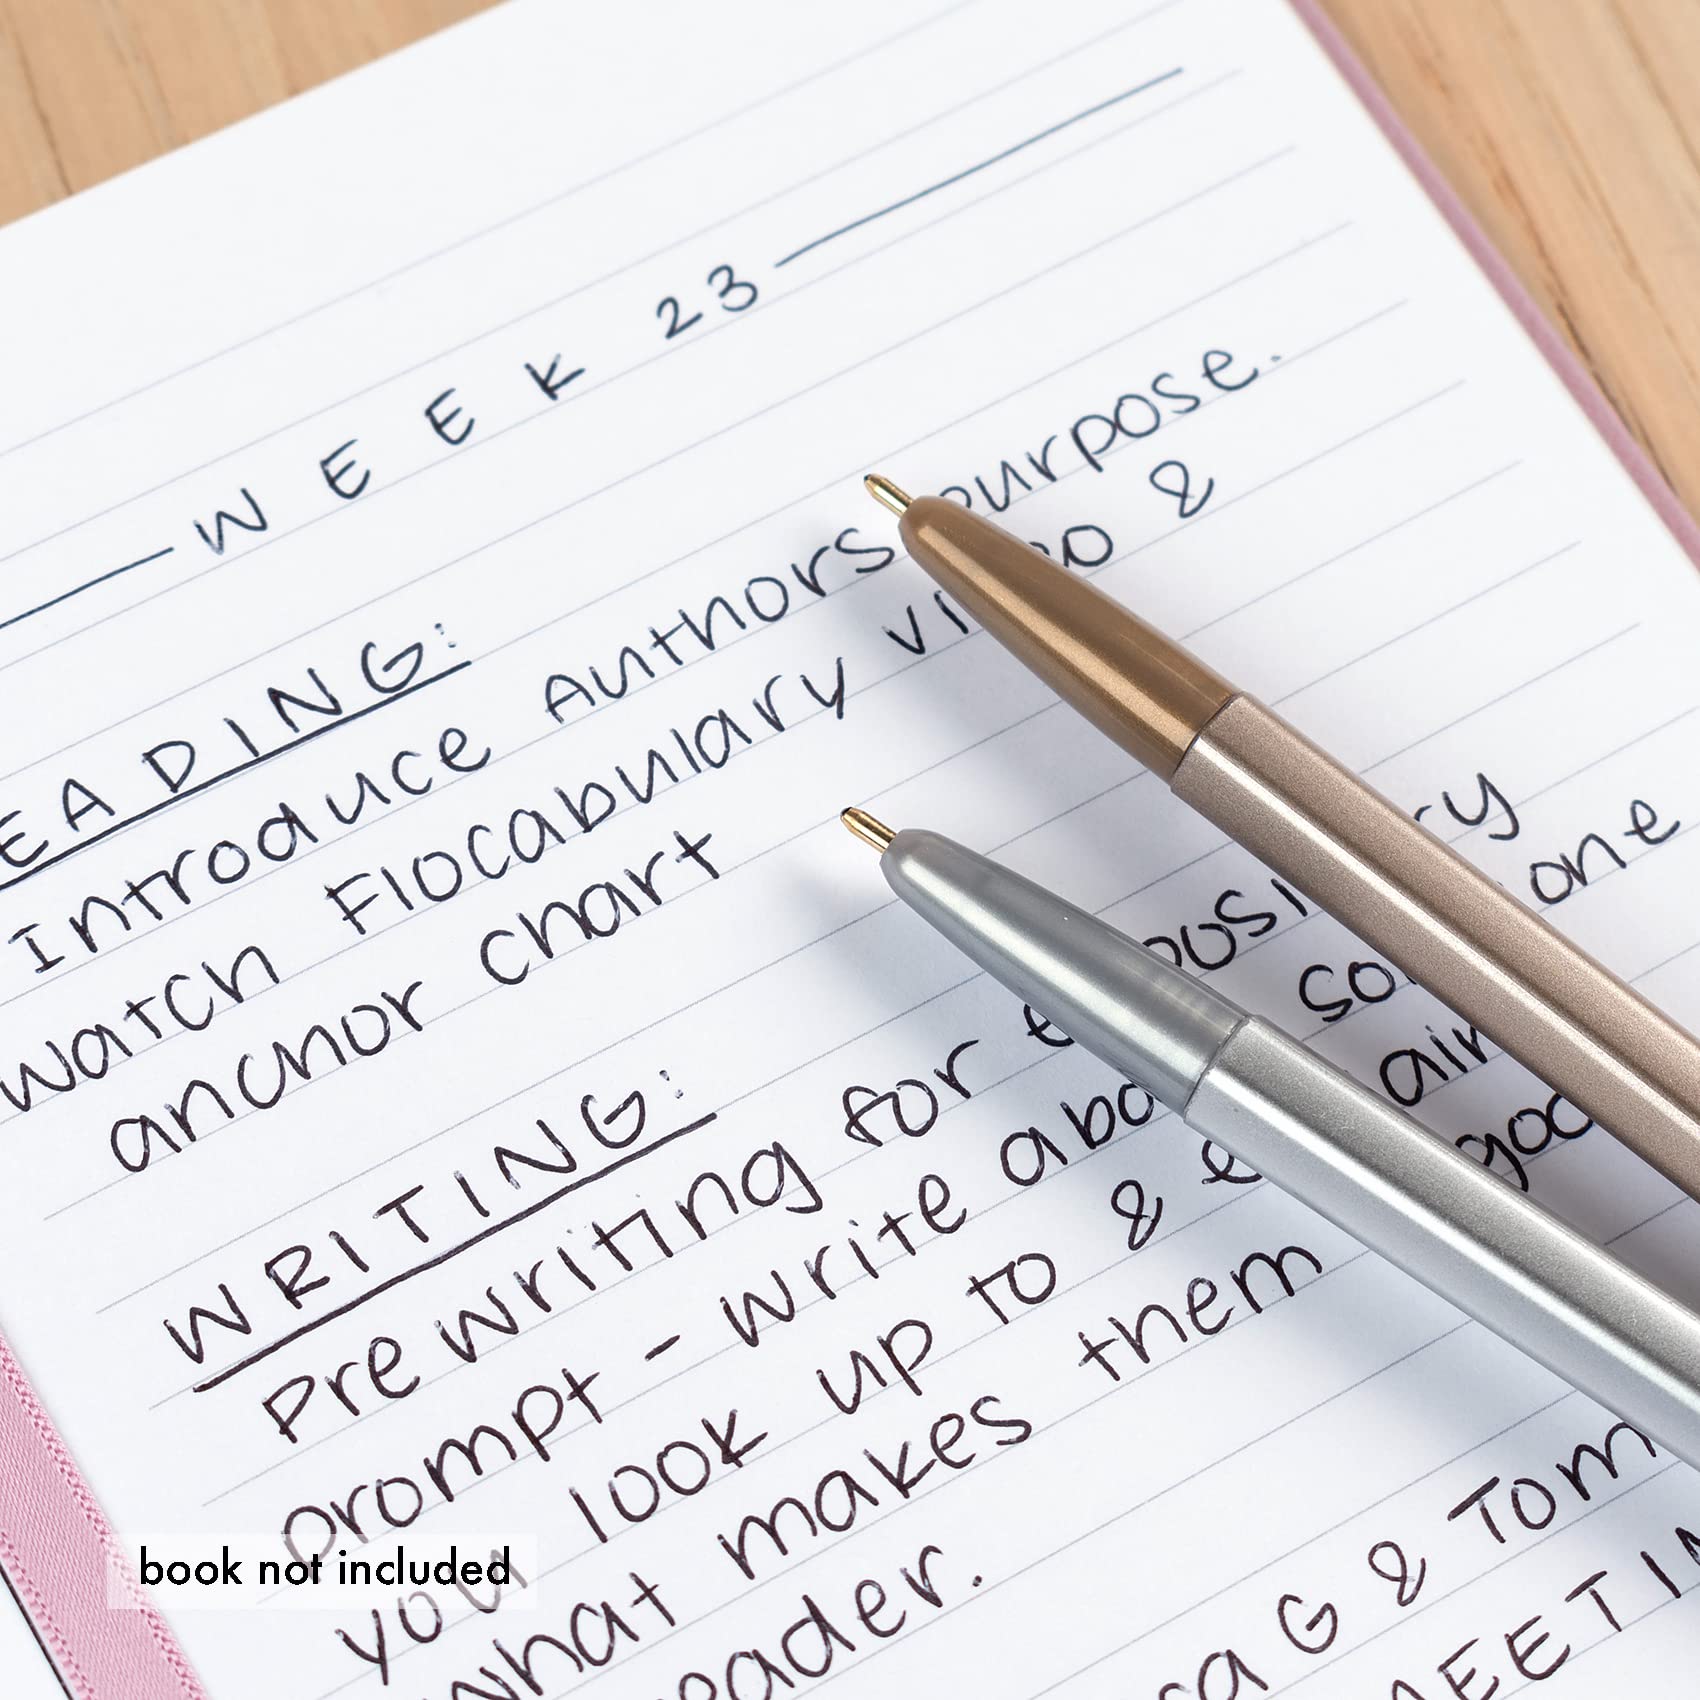 WEEK 23
EADING:
Introduce Authors purpose.
watch Flocabulary video &
anchor chart
WRITING:
Prewriting for expository
prompt - write about someone
you look up to &
what makes them good
leader.
G & Tom
MEETIN
book not included